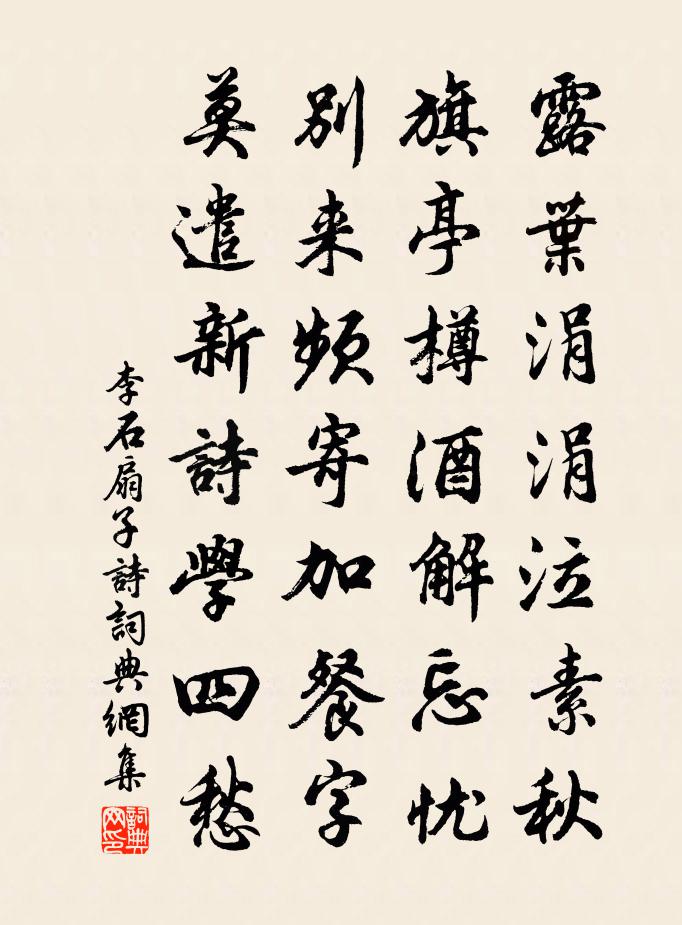 露葉涓涓泣素秋
旗亭樽酒解忘忧
别来频寄加餐字
莫遣新詩學四愁
李石扇子詩詞典網集
詞典網印